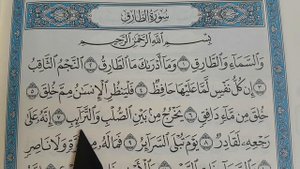 سُورَةُ الطَّارِقِ
بِسْمِ اللَّهِ الرَّحْمَٰنِ الرَّحِيمِ
وَالسَّمَاءِ وَالطَّارِقِ ١ وَمَا أَدْرَىٰكَ مَا الطَّارِقُ ٢ النَّجْمُ الثَّاقِبُ
٣ إِن كُلُّ نَفْسٍ لَّمَّا عَلَيْهَا حَافِظٌ ٤ فَلْيَنظُرِ الْإِنسَٰنُ مِمَّ خُلِقَ ٥
خُلِقَ مِن مَّاءٍ دَافِقٍ ٦ يَخْرُجُ مِن بَيْنِ الصُّلْبِ وَالتَّرَائِبِ ٧ إِنَّهُ عَلَىٰ
رَجْعِهِ لَقَادِرٌ ٨ يَوْمَ تُبْلَى السَّرَائِرُ ٩ فَمَا لَهُ مِن قُوَّةٍ وَلَا نَاصِرٍ